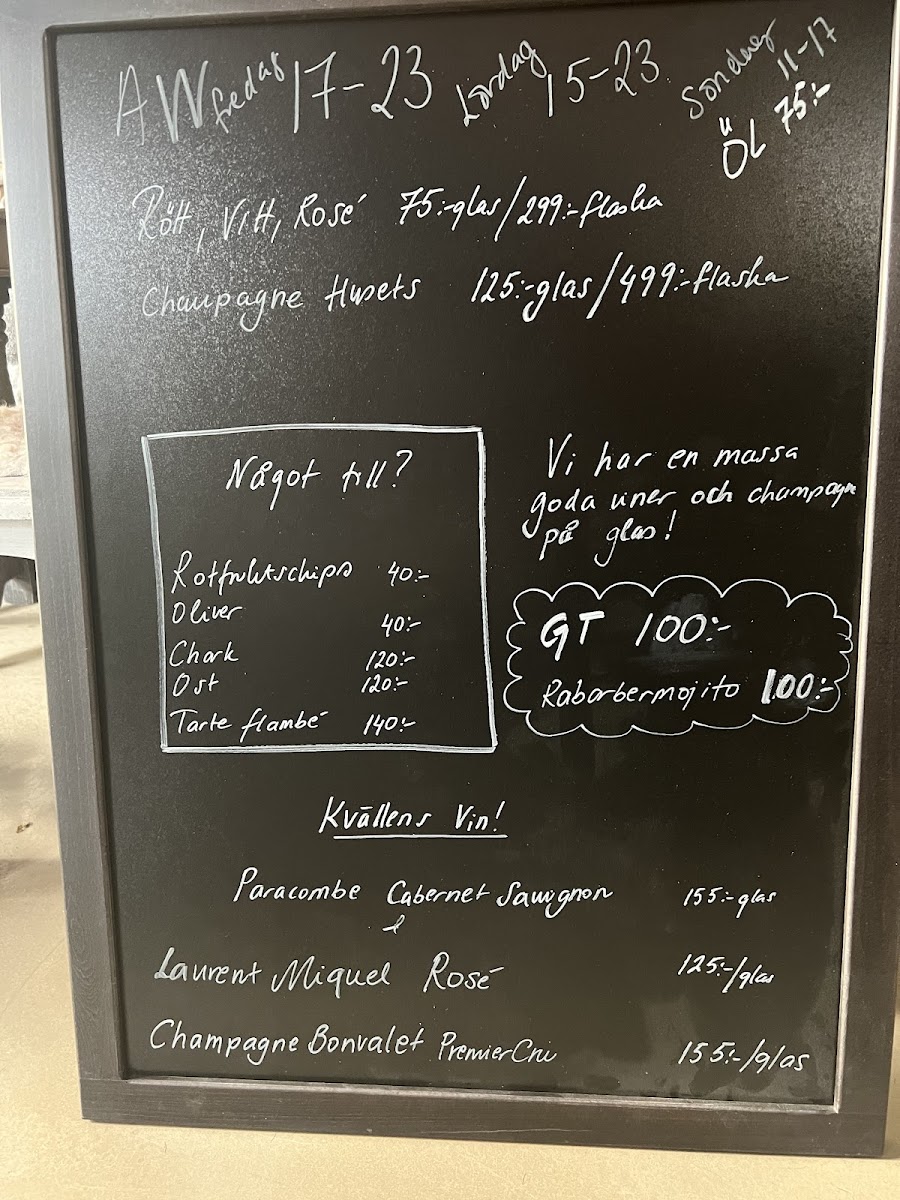 AW fredag 17-23 Lördag 15-23 Söndag 11-17
ÖL 75:-
Rött, Vitt, Rosé 75:-glas/299:-flaska
Champagne Husets 125:-glas/499:-flaska
Något till?
Rotfruktschips 40:-
Oliver 40:-
Chark 120:-
Ost 120:-
Tarte flambé 140:-
Vi har en massa
goda viner och champagne
på glas!
GT 100:-
Rabarbermojito 100:-
Kvällens Vin!
Paracombe Cabernet Sauvignon 155:-glas
Laurent Miquel Rosé 125:-/glas
Champagne Bonvalet Premier Cru 155:-/glas